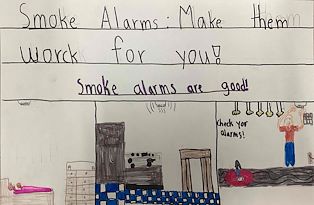 Smoke Alarms: Make them
worck for you!
Smoke alarms are good!
Check yor
alarms!